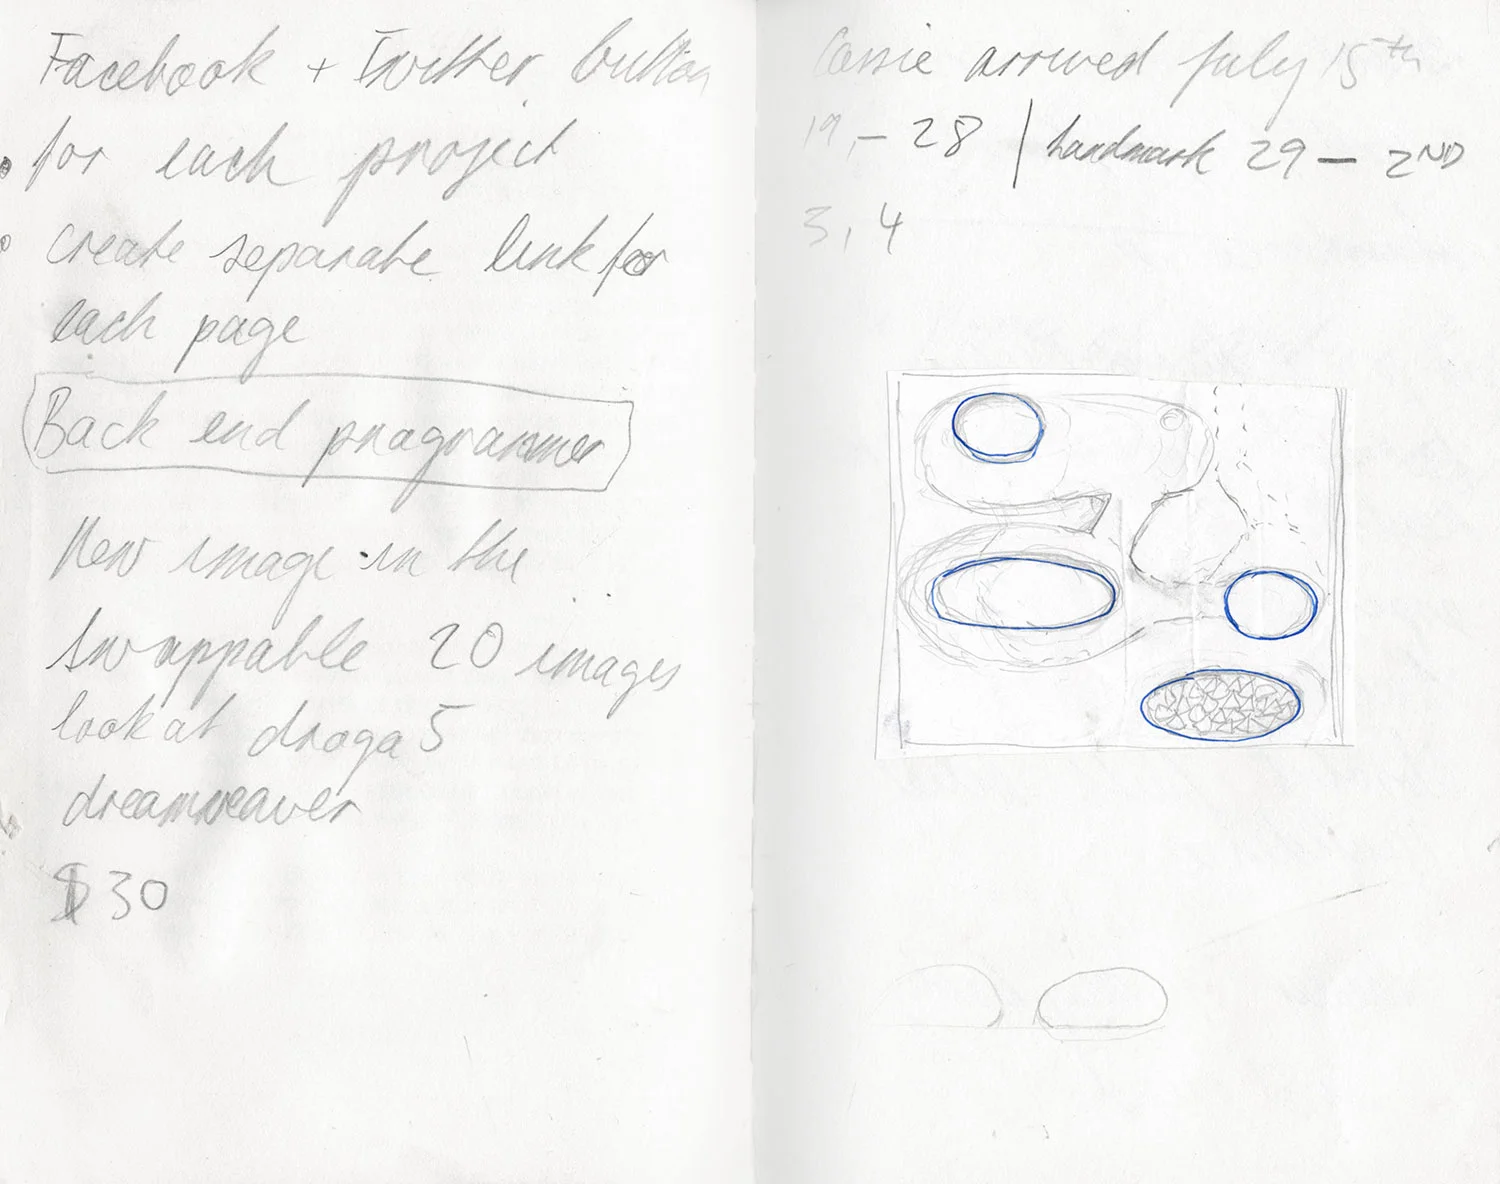 Facebook + Twitter button
for each project
create separate link for
each page
Back end programmer
New image in the
swappable 20 images
look at droga5
dreamweaver
$30
Cassie arrived July 15th
19,- 28 | handmark 29 - 2ND
3, 4